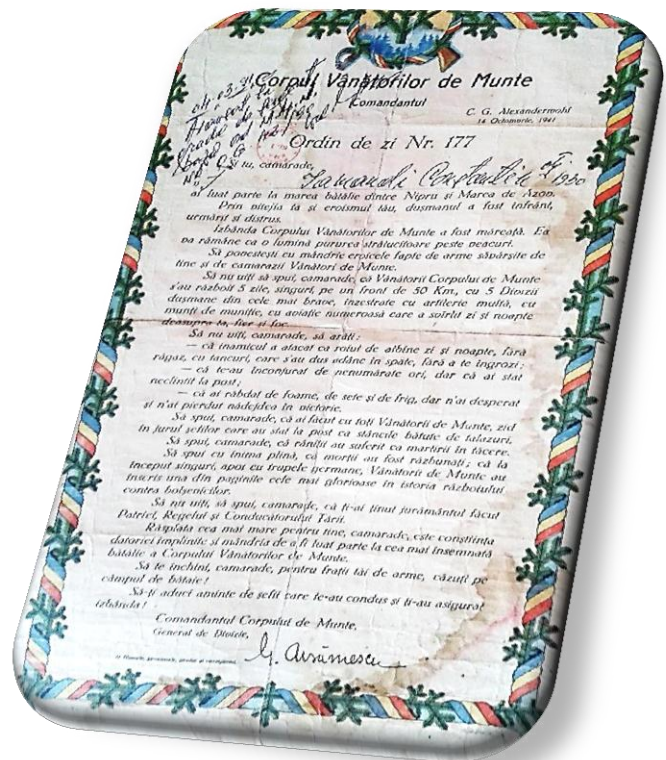 Corpul Vânătorilor de Munte
Comandantul
C. G. Alexandermohl
14 Octomvrie, 1941
Ordin de zi Nr. 177
Și tu, camarade,
Constantin
ai luat parte la marea bătălie dintre Nipru și Marea de Azov.
Prin vitejia ta și eroismul tău, dușmanul a fost înfrânt,
urmărit și distrus.
Izbânda Corpului Vânătorilor de Munte a fost măreață. Ea
va rămâne ca o lumină pururea strălucitoare peste veacuri.
Să povestești cu mândrie eroicele fapte de arme săvârșite de
tine și de camarazii Vânători de Munte.
Să nu uiți să spui, camarade, că Vânătorii Corpului de Munte
s'au războit 5 zile, singuri, pe un front de 50 Km, cu 5 Divizii
dușmane din cele mai brave, înzestrate cu artilerie multă, cu
munți de muniție, cu aviație numeroasă care a svârlit zi și noapte
deasupra ta, fier și foc.
Să nu uiți, camarade, să arăți:
— că inamicul a atacat ca roiul de albine zi și noapte, fără
răgaz, cu tancuri, care s'au dus adânc în spate, fără a te îngrozi;
— că te-au înconjurat de nenumărate ori, dar că ai stat
neclintit la post;
— că ai răbdat de foame, de sete și de frig, dar n'ai desperat
și n'ai pierdut nădejdea în victorie.
Să spui, camarade, că ai făcut cu toți Vânătorii de Munte, zid
în jurul șefilor care au stat la post ca stâncile bătute de talazuri.
Să spui, camarade, că răniții au suferit ca martirii în tăcere.
Să spui cu inima plină, că morții au fost răzbunați; că la
început singuri, apoi cu trupele germane, Vânătorii de Munte au
înscris una din paginile cele mai glorioase în istoria războiului
contra bolșevicilor.
Să nu uiți, să spui, camarade, că ți-ai ținut jurământul făcut
Patriei, Regelui și Conducătorului Țării.
Răsplata cea mai mare pentru tine, camarade, este conștiința
datoriei împlinite și mândria de a fi luat parte la cea mai însemnată
bătălie a Corpului Vânătorilor de Munte.
Să te închini, camarade, pentru frații tăi de arme, căzuți pe
câmpul de bătaie!
Să-ți aduci aminte de șefii care te-au condus și ți-au asigurat
izbânda!
Comandantul Corpului de Munte,
General de Divizie,
G. Avrămescu